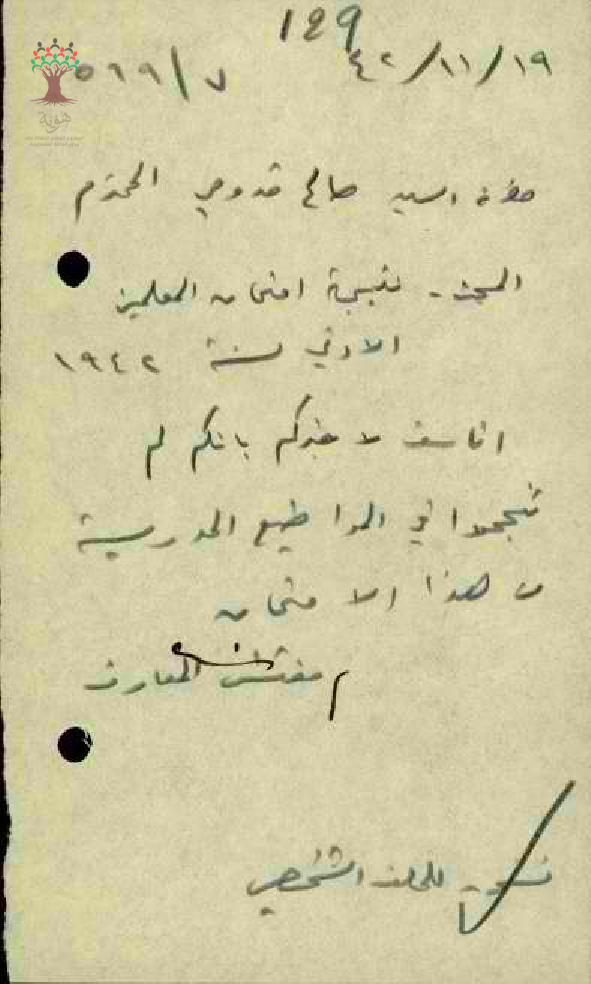 129
٤٢/١١/١٩
٥٦٩/٧
هوية
حضرة السيد صالح قدومي المحترم
المبحث - نتيجة امتحان المعلمين
الادنى لسنة ١٩٤٢
اتأسف لاخبركم بانكم لم
تنجحوا في المواضيع المدرسية
من هذا الامتحان
مفتش المعارف
نسخة للملف الشخصي